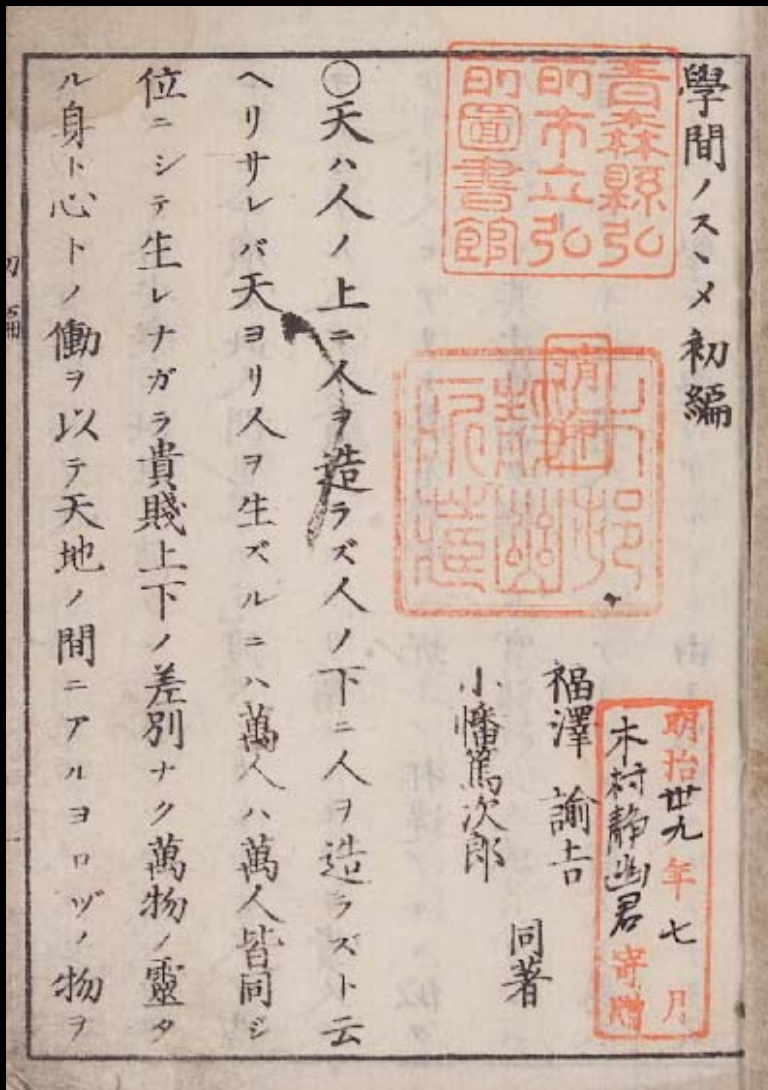 學問ノスヽメ 初編
青森縣弘
前市立弘
前圖書館
明治卅九年七月
木村靜幽君寄贈
福澤 諭吉
小幡篤次郎
同著
〇天ハ人ノ上ニ人ヲ造ラズ人ノ下ニ人ヲ造ラズト云
ヘリサレバ天ヨリ人ヲ生ズルニハ萬人ハ萬人皆同ジ
位ニシテ生レナガラ貴賤上下ノ差別ナク萬物ノ靈タ
ル身ト心トノ働ヲ以テ天地ノ間ニアルヨロヅノ物ヲ
初編